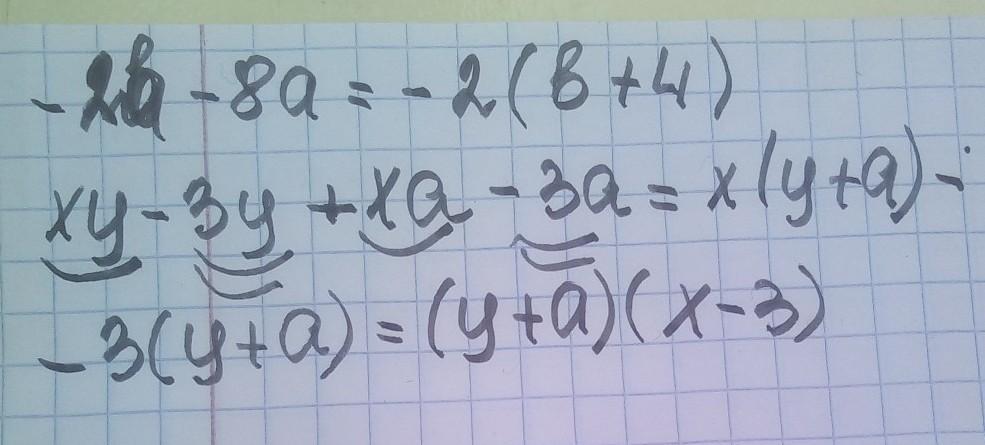 - 2b - 8a = - 2 (b + 4)
xy - 3y + xa - 3a = x(y+a) -
- 3(y+a) = (y+a)(x-3)